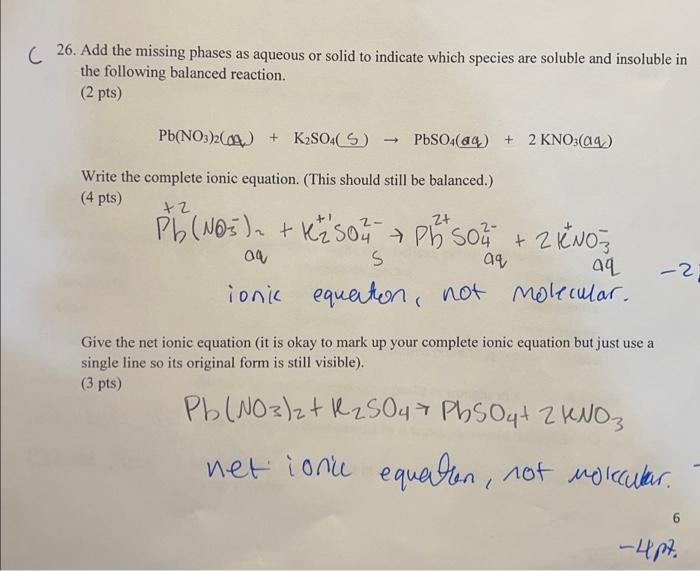 C 26. Add the missing phases as aqueous or solid to indicate which species are soluble and insoluble in
the following balanced reaction.
(2 pts)
Pb(NO₃)₂(aq) + K₂SO₄(S) → PbSO₄(aq) + 2 KNO₃(aq)
Write the complete ionic equation. (This should still be balanced.)
(4 pts)
Pb⁺²(NO₃⁻)₂ + K₂⁺¹SO₄²⁻ → Pb²⁺SO₄²⁻ + 2K⁺NO₃⁻
aq S aq aq -2
ionic equation, not molecular.
Give the net ionic equation (it is okay to mark up your complete ionic equation but just use a
single line so its original form is still visible).
(3 pts)
Pb(NO3)2 + K2SO4 → PbSO4 + 2KNO3
net ionic equation, not molecular. -
6
-4pt.